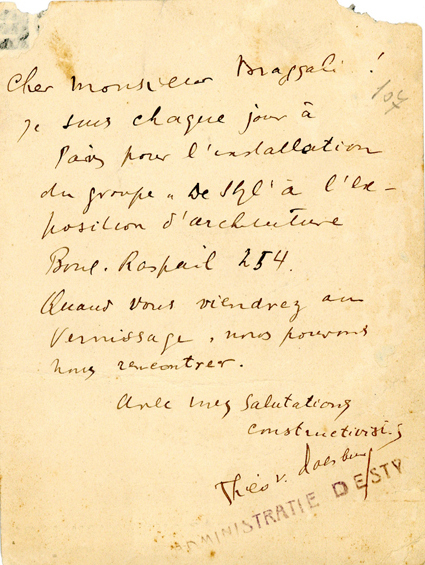 Cher Monsieur Braggali !
107
Je suis chaque jour à
Paris pour l'installation
du groupe „De Styl" à l'ex-
position d'architecture
Boul. Raspail 254.
Quand vous viendrez au
Vernissage, nous pouvons
nous rencontrer.
Avec mes Salutations
constructivistes
Théo v. Doesburg
ADMINISTRATIE DE STY